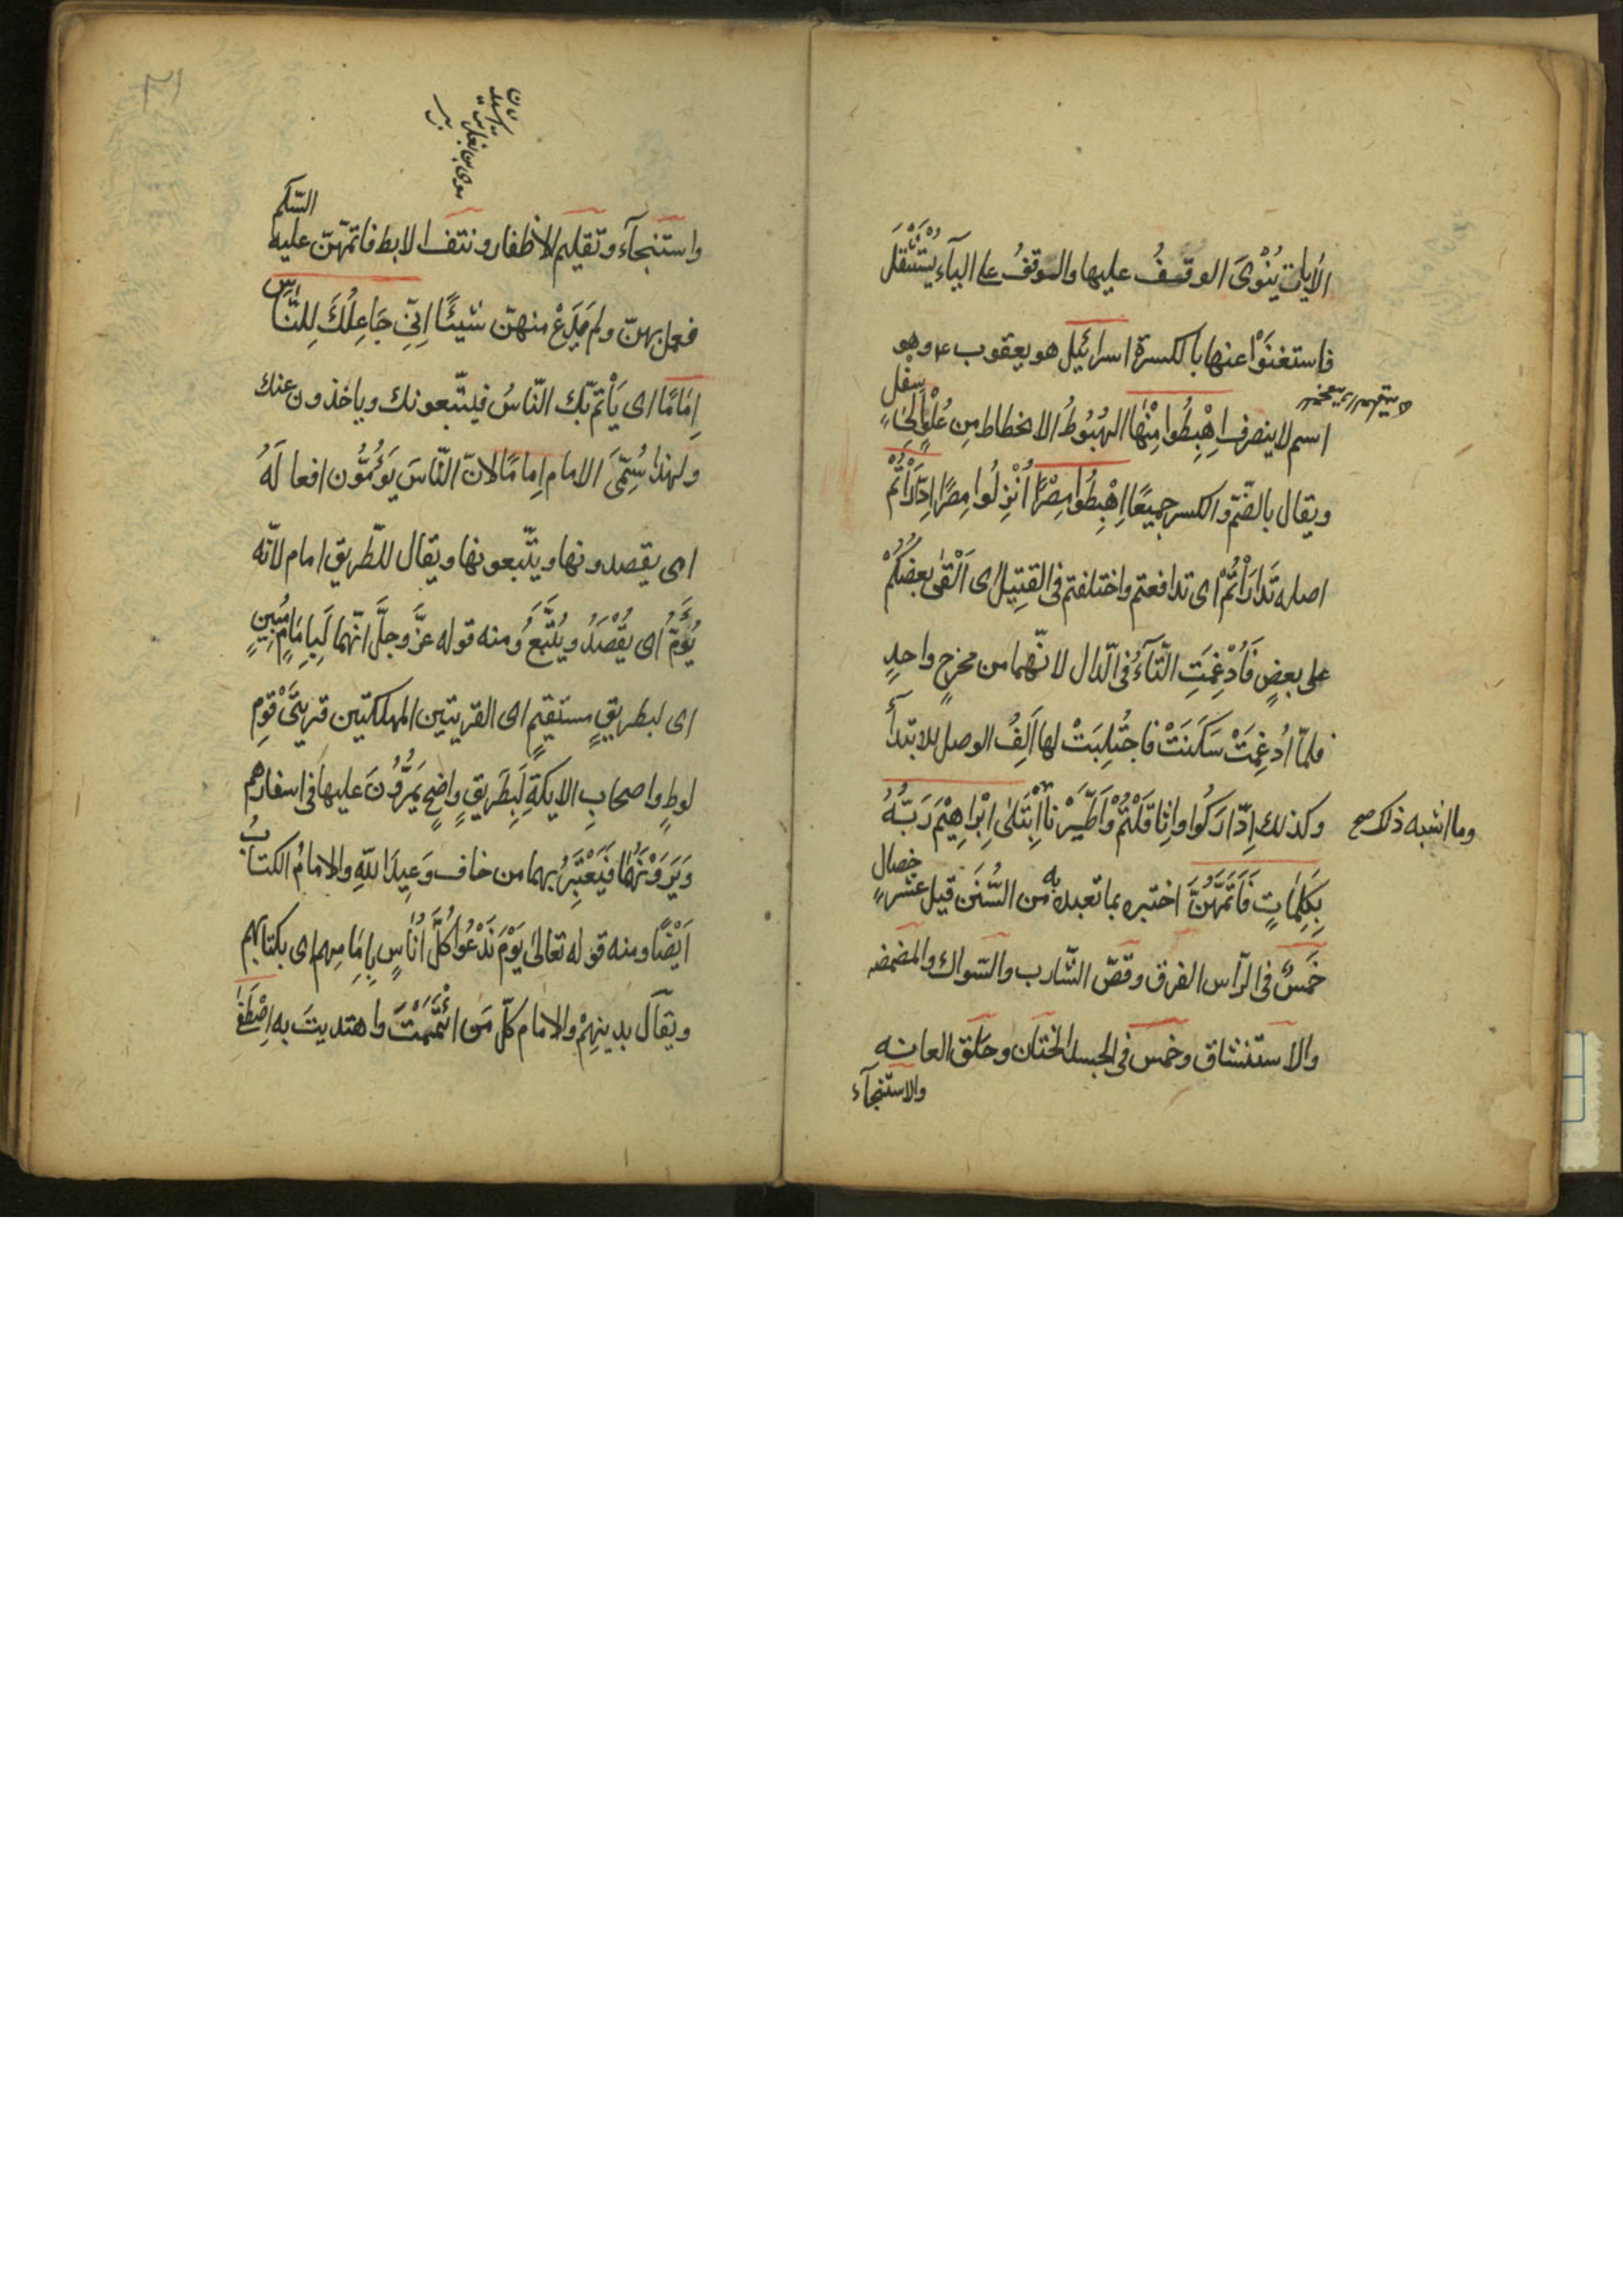 الأيات يُنْوىَ الوقفُ عليها والوقفُ على اليآء يُسْتَثْقَلُ
فاستغنَوْا عنها بالكسرة اسرائيل هو يعقوب ع م وهو
اسم لا ينصرف اِهْبِطُوا مِنْهَا الهُبُوطُ الانحطاط مِن عُلْوٍ اِلىٰ سِفْلٍ
ويقال بالضّمّ والكسر جميعًا اِهْبِطُوا مِصْرًا اُنْزِلُوا مِصْرًا اِدّٰارَأْتُمْ
اصله تَدَارَأْتُمْ اى تدافعتم واختلفتم فى القَتِيل اى اَلْقىٰ بعضُكُمْ
على بعضٍ فَاُدْغِمَتِ التّآءُ فى الدّال لانّهما من مخرجٍ واحدٍ
فلمّا اُدْغِمَتْ سَكَنَتْ فاجتُلِبَتْ لها اَلِفُ الوصل للابتدآء
وكذلك اِدّارَكُوا واثّاقَلْتُمْ وَاطَّيَّرْنا اِبْتَلىٰ اِبْراهِيْمَ رَبُّهُ
وما اشبه ذلك صح
بِكَلِمٰاتٍ فَاَتَمَّهُنَّ اختبره بما تعبده به من السُّنَن قيل عشر خصال
خَمسٌ فى الرّأس الفرق وقصّ الشّارب والسّواك والمضمضه
والاستنشاق وخمس فى الجسد الختان وحلق العانه
والاستنجآء
واستنجآء وتقليم الاظفار ونتف الابط فاتمّهنّ عليه السّلم
فعمل بهنّ ولم يَدَعْ منهنّ شيئًا اِنّى جَاعِلُكَ لِلنّاسِ
اِمٰامًا اى يَأتمّ بك النّاسُ فيتّبعونك وياخذون عنك
ولهذا سُمِّىَ الامام اِمامًا لانّ النّاسَ يَؤُمُّون افعالَهُ
اى يقصدونها ويتّبعونها ويقال للطّريق امام لأنّه
يُؤَمُّ اى يُقْصَدُ ويُتَّبَعُ ومنه قوله عزَّ وجلَّ انّهما لَبِامَامٍ مُبِينٍ
اى لبطريقٍ مستقيمٍ اى القريتين المهلكتين قريتَىْ قومِ
لوطٍ واصحابِ الايكةِ لَبِطَرِيقٍ واضحٍ يَمُرُّوْنَ عليها فى اسفارهم
وَيَرَوْنَهُمٰا فَيَعْتَبِرُ بهما من خاف وَعِيدَ اللّهِ والامامُ الكتابُ
اَيْضًا ومنه قوله تعالىٰ يَوْمَ نَدْعُوا كُلَّ اُنٰاسٍ بِاِمٰامِهِم اى بكتابهم
ويقال بدينِهِمْ والامام كلّ مَن ائْتَمَمْتَ واهتديتَ به اِصْطَفىٰ